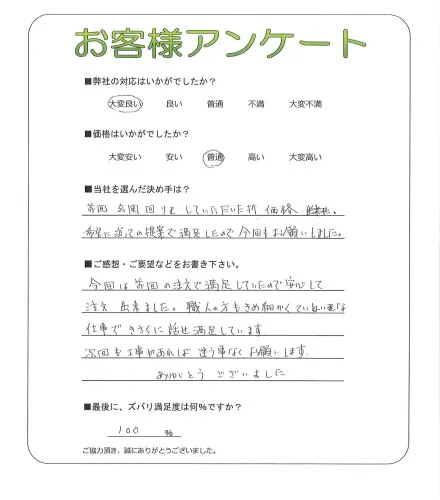 お客様アンケート
■弊社の対応はいかがでしたか?
大変良い 良い 普通 不満 大変不満
■価格はいかがでしたか?
大変安い 安い 普通 高い 大変高い
■当社を選んだ決め手は?
前回 玄関回りをしていただいた時 価格
希望に沿っての提案で満足したので今回もお願いしました。
■ご感想・ご要望などをお書き下さい。
今回は前回の注文で満足していたので安心して
注文出来ました。職人の方もきめ細かくていねいな
仕事できさくに話せ満足しています
次回も工事があれば迷う事なくお願いします.
ありがとうございました
■最後に、ズバリ満足度は何%ですか?
100 %
ご協力頂き、誠にありがとうございました。